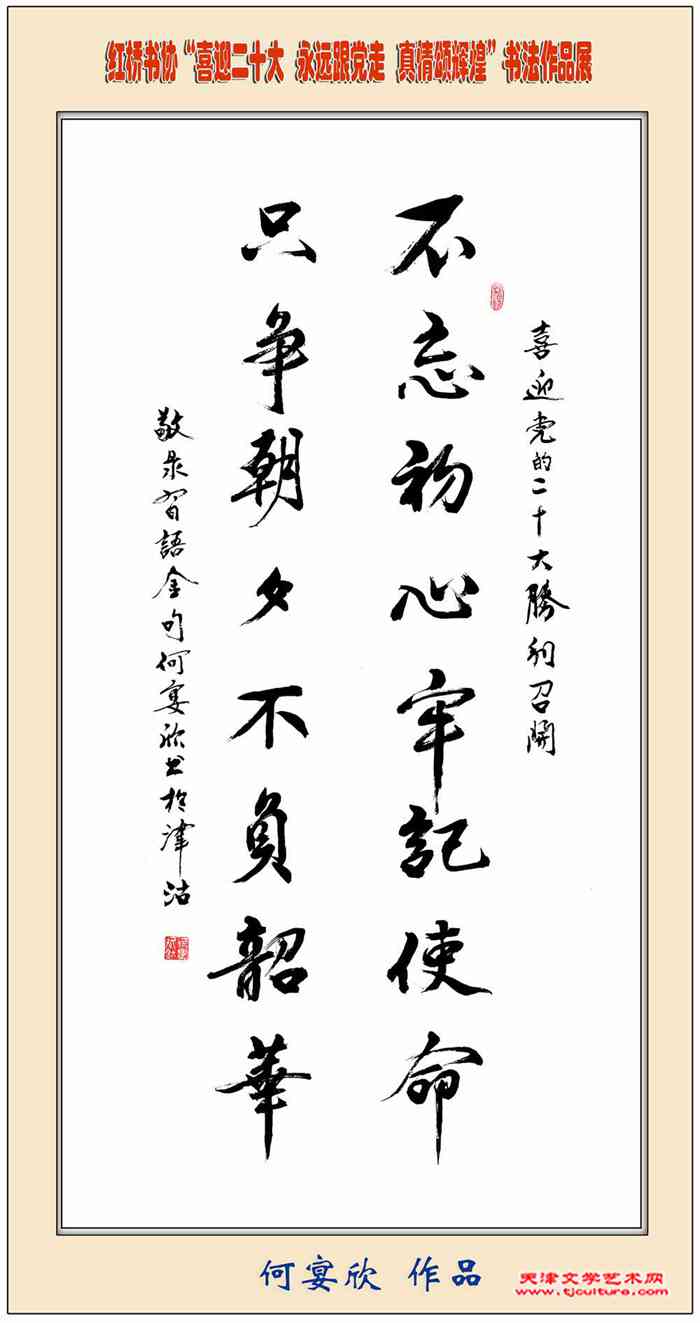 红桥书协“喜迎二十大 永远跟党走 真情颂辉煌”书法作品展
喜迎党的二十大勝利召開
不忘初心牢記使命
只争朝夕不負韶華
敬录習語金句何宴欣书於津沽
何宴欣 作品
天津文学艺术网
www.tjculture.com